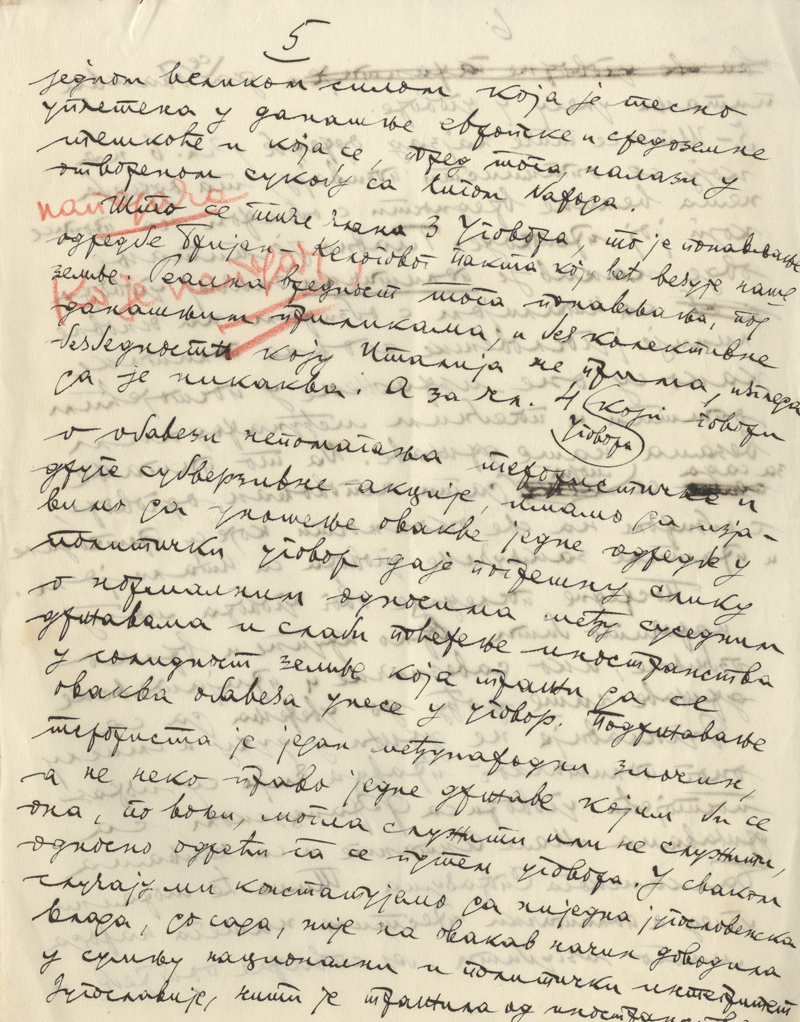 5
једном великом силом која је тесно
уплетена у данашње европске и средоземне
тешкоће и која се, поред тога, налази у
отвореном сукобу са Лигом Народа.
Што се тиче члана 3 Уговора, то је понављање
одредбе Бријан-Келоговог пакта који већ везује наше
земље. Реална вредност тога понављања, под
данашњим приликама, и без колективне
безбедности коју Италија не прима, изгледа
да је никаква. А за чл. 4 који говори
Уговора
о обавези непомагања терористичке и
друге субверзивне акције, имамо да изја-
вимо да уношење овакве једне одредбе у
политички уговор даје погрешну слику
о нормалним односима међу суседним
државама и слаби поверење иностранства
у солидност земље која тражи да се
оваква обавеза унесе у уговор. Подржавање
терориста је један међународни злочин,
а не неко право једне државе којим би се
она, по вољи, могла служити или не служити,
односно одрећи га се путем уговора. У сваком
случају ми констатујемо да ниједна југословенска
влада, до сада, није на овакав начин доводила
у сумњу национални и политички интегритет
Југославије, нити је тражила од